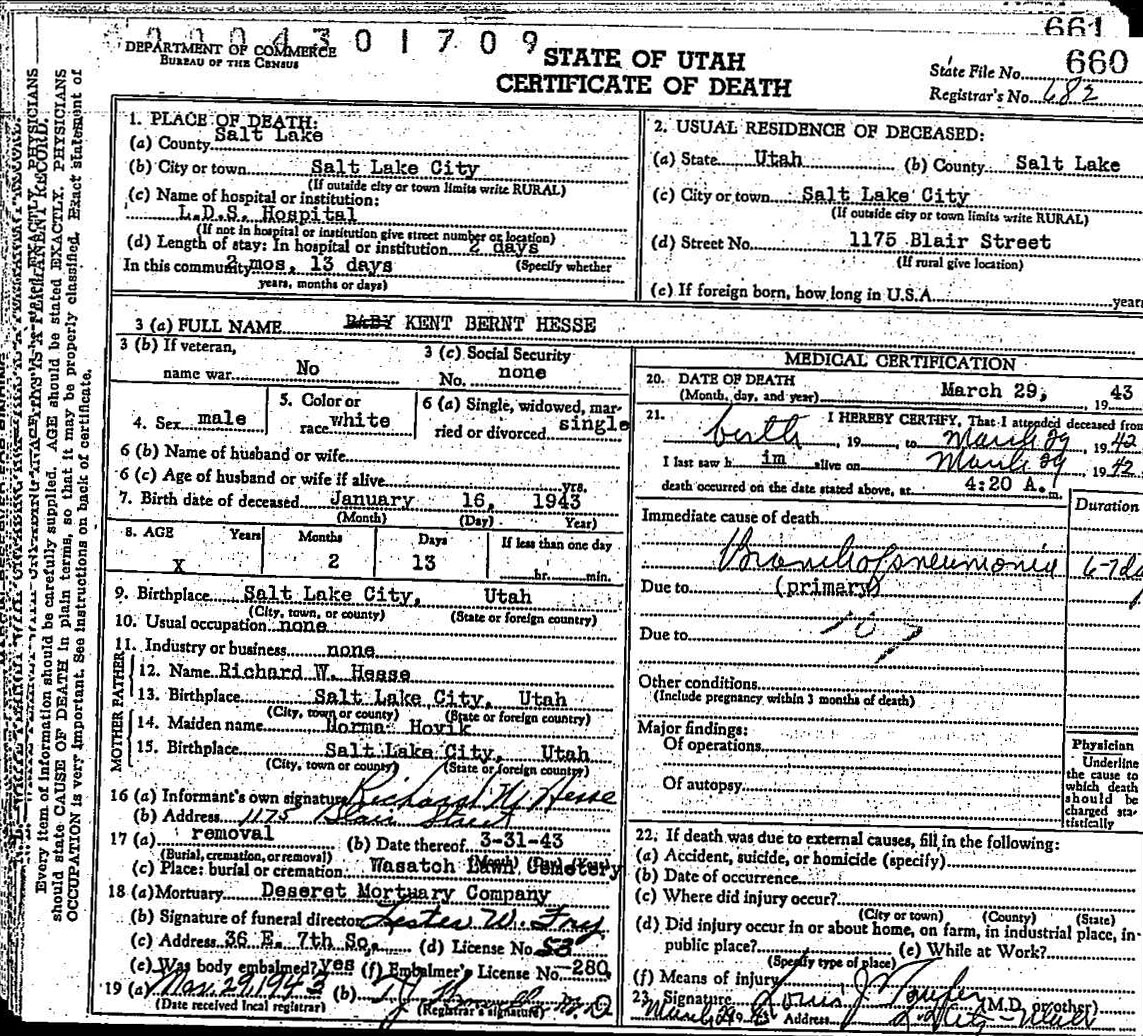 661
0004301709
DEPARTMENT OF COMMERCE
BUREAU OF THE CENSUS
STATE OF UTAH
CERTIFICATE OF DEATH
State File No. 660
Registrar's No. 682
Every item of information should be carefully supplied. AGE should be stated EXACTLY. PHYSICIANS
should state CAUSE OF DEATH in plain terms, so that it may be properly classified. Exact statement of
OCCUPATION is very important. See instructions on back of certificate.
1. PLACE OF DEATH:
(a) County Salt Lake
(b) City or town Salt Lake City
(If outside city or town limits write RURAL)
(c) Name of hospital or institution:
L.D.S. Hospital
(If not in hospital or institution give street number or location)
(d) Length of stay: In hospital or institution 2 days
In this community 2 mos, 13 days (Specify whether
years, months or days)
2. USUAL RESIDENCE OF DECEASED:
(a) State Utah (b) County Salt Lake
(c) City or town Salt Lake City
(If outside city or town limits write RURAL)
(d) Street No. 1175 Blair Street
(If rural give location)
(e) If foreign born, how long in U.S.A. years
3 (a) FULL NAME BABY KENT BERNT HESSE
3 (b) If veteran,
name war No
3 (c) Social Security
No. none
4. Sex male
5. Color or
race white
6 (a) Single, widowed, mar-
ried or divorced single
6 (b) Name of husband or wife
6 (c) Age of husband or wife if alive yrs.
7. Birth date of deceased January 16, 1943
(Month) (Day) Year)
8. AGE Years Months Days If less than one day
X 2 13 hr. min.
9. Birthplace Salt Lake City, Utah
(City, town, or county) (State or foreign country)
10. Usual occupation none
11. Industry or business none
FATHER
12. Name Richard W. Hesse
13. Birthplace Salt Lake City, Utah
(City, town or county) (State or foreign country)
MOTHER
14. Maiden name Norma Hovik
15. Birthplace Salt Lake City, Utah
(City, town or county) (State or foreign country)
16 (a) Informant's own signature Richard W. Hesse
(b) Address 1175 Blair Street
17 (a) removal (b) Date thereof 3-31-43
(Burial, cremation, or removal) (Month) (Day) (Year)
(c) Place: burial or cremation Wasatch Lawn Cemetery
18 (a) Mortuary Deseret Mortuary Company
(b) Signature of funeral director Lester W. Fry
(c) Address 36 E. 7th So. (d) License No. 53
(e) Was body embalmed? yes (f) Embalmer's License No. 280
19 (a) Mar. 29 1943 (b) M.D.
(Date received local registrar) (Registrar's signature)
MEDICAL CERTIFICATION
20. DATE OF DEATH
(Month, day, and year) March 29, 19 43
21. I HEREBY CERTIFY, That I attended deceased from
birth, 19 , to March 29, 19 42
I last saw h im alive on March 29, 19 42
death occurred on the date stated above, at 4:20 A. m.
Duration
Immediate cause of death
Bronchopneumonia 6-7 da
Due to (primary)
Due to 107
Other conditions
(Include pregnancy within 3 months of death)
Major findings:
Of operations
Of autopsy
Physician
Underline
the cause to
which death
should be
charged sta-
tistically
22. If death was due to external causes, fill in the following:
(a) Accident, suicide, or homicide (specify)
(b) Date of occurrence
(c) Where did injury occur?
(City or town) (County) (State)
(d) Did injury occur in or about home, on farm, in industrial place, in-
public place? (e) While at Work?
(Specify type of place)
(f) Means of injury
23. Signature Louis J. (M.D. or other)
March 29 19 43 Address